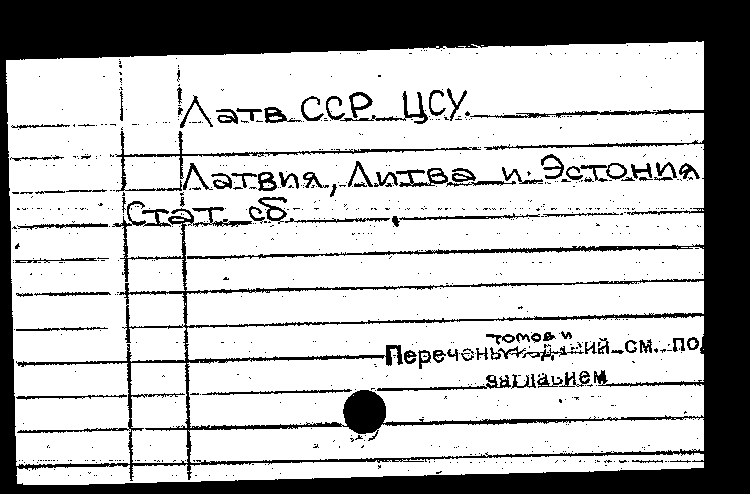 Латв ССР. ЦСУ.
Латвия, Литва и Эстония
Стат. сб.
томов и
Перечень изданий см. под
заглавием